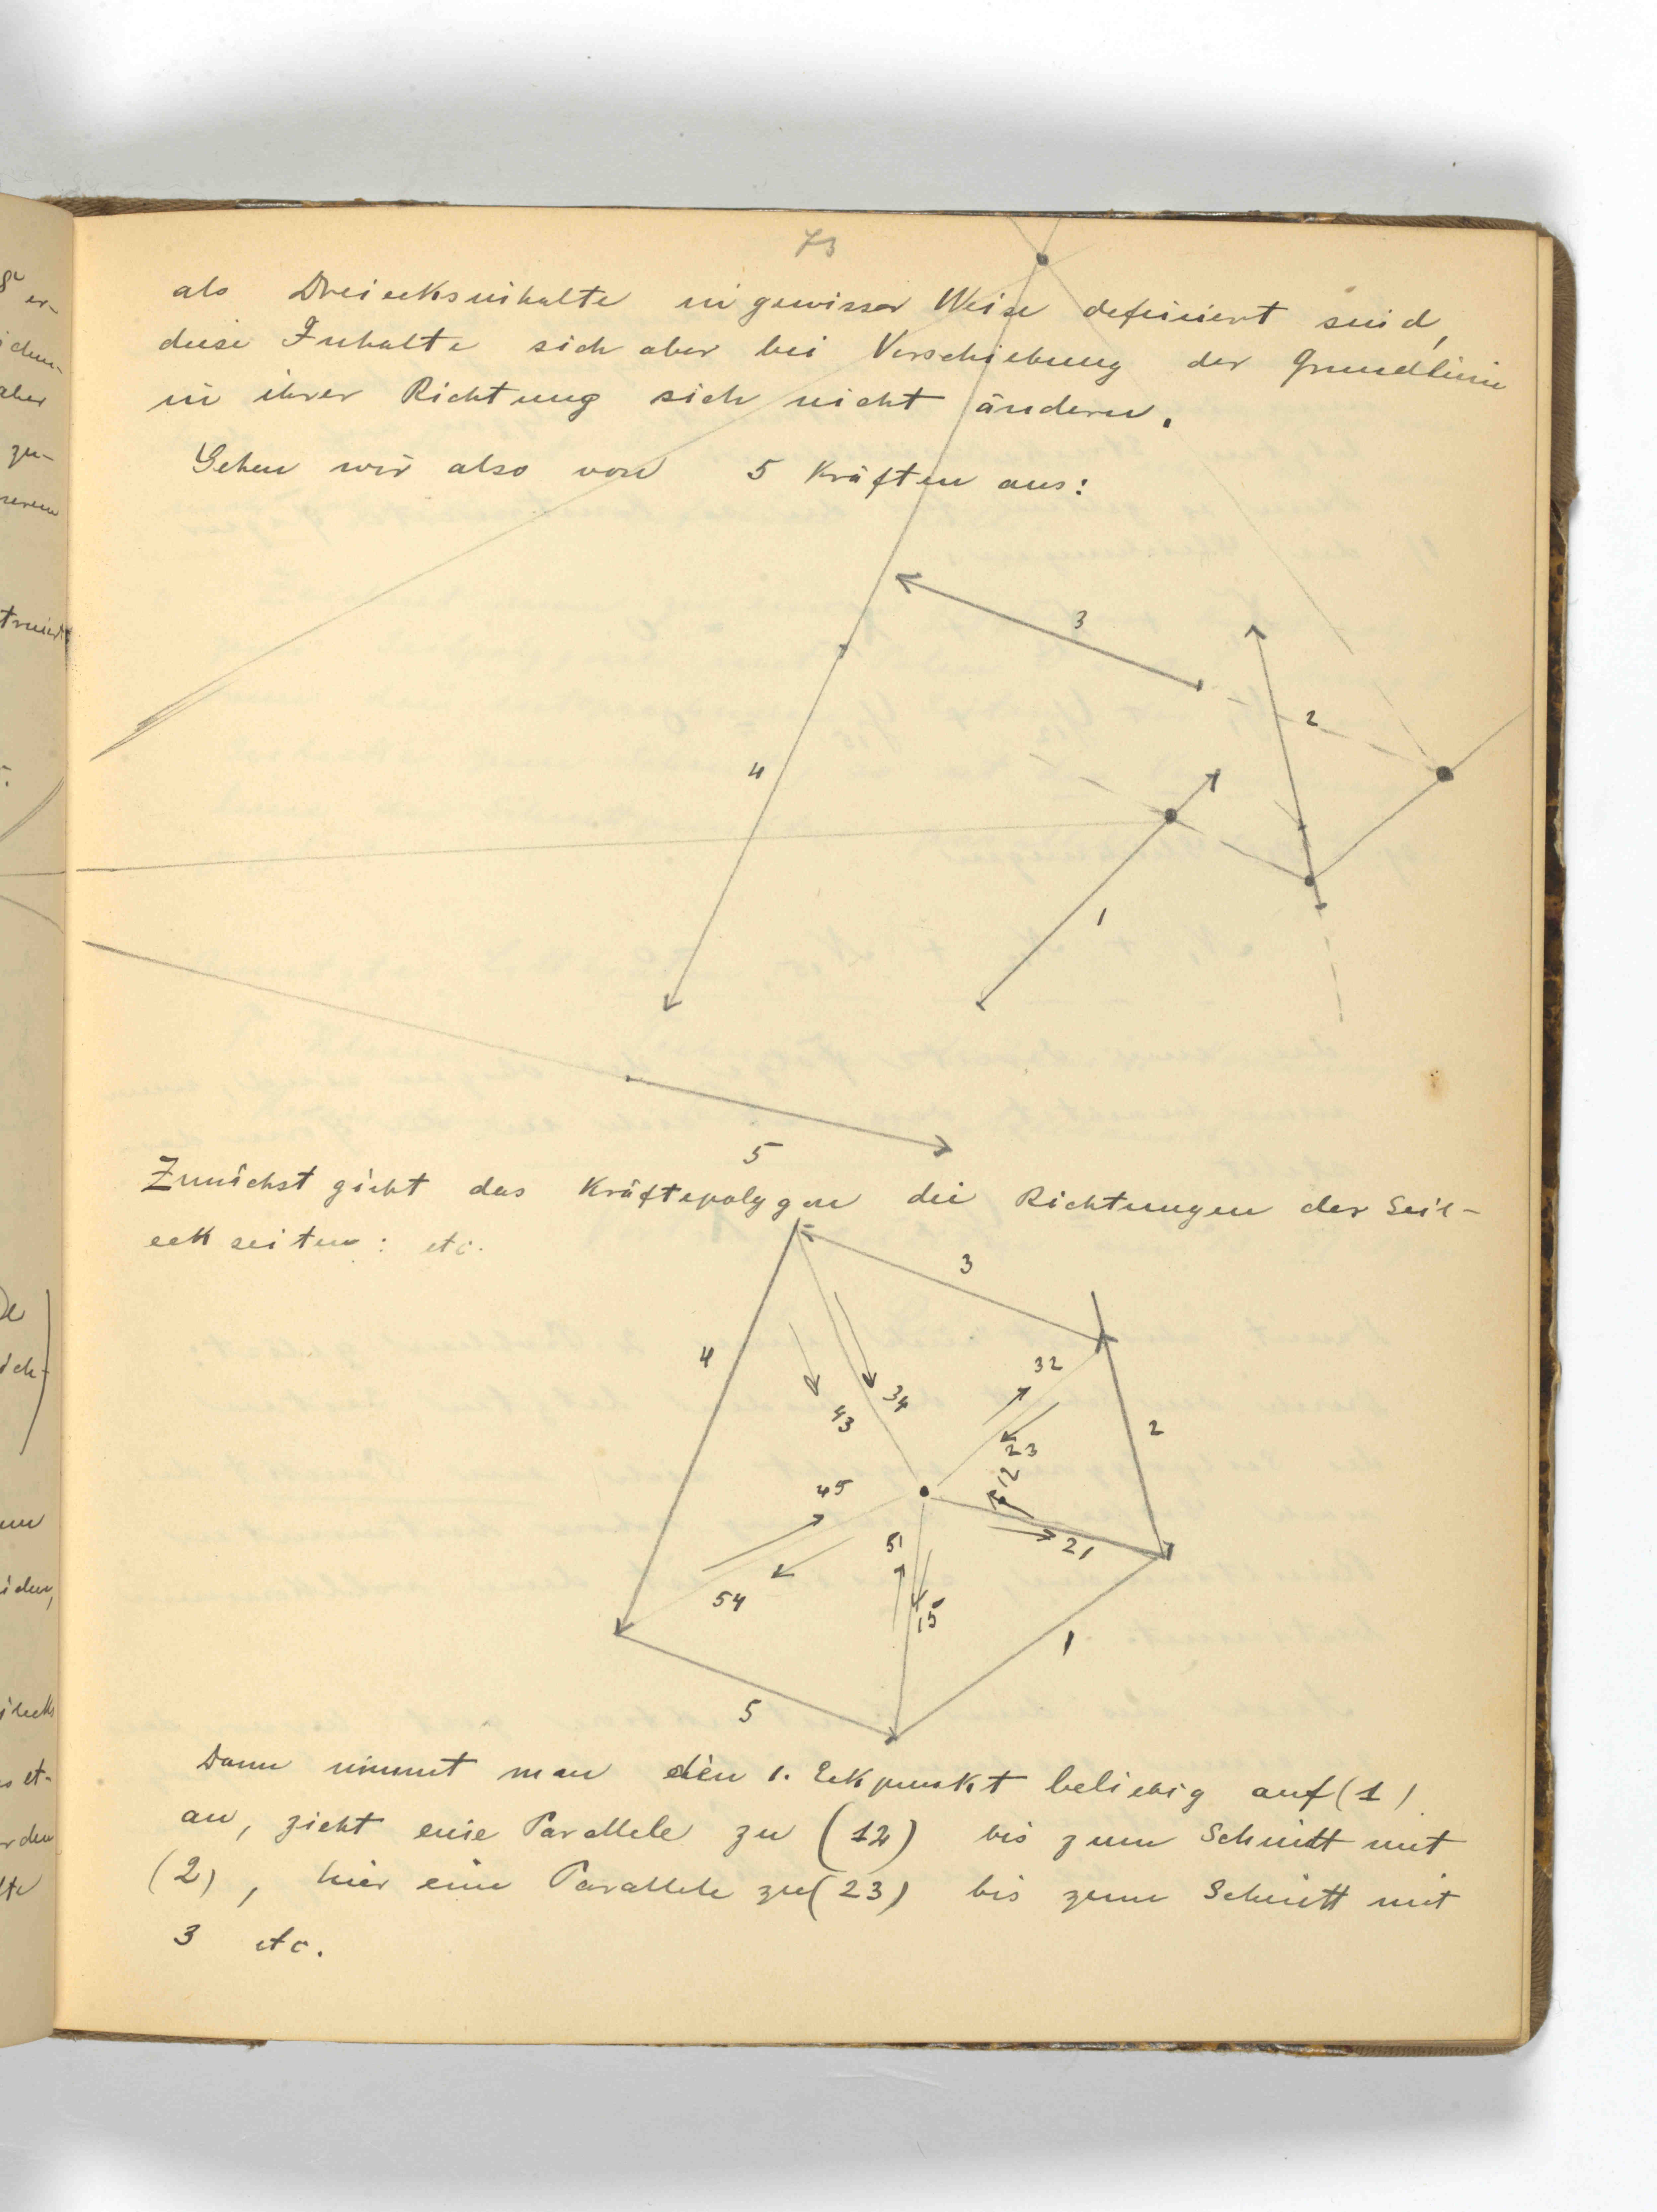 73
als Dreiecksinhalte in gewisser Weise definiert sind,
diese Inhalte sich aber bei Verschiebung der Grundlinie
in ihrer Richtung sich nicht ändern.
Gehen wir also von 5 Kräften aus:
3
2
4
1
5
Zunächst giebt das Kräftepolygon die Richtungen der Seil-
eckseiten: etc.
3
4
32
34
43
2
23
12
45
51
21
54
15
1
5
Dann nimmt man den 1. Eckpunkt beliebig auf (1)
an, zieht eine Parallele zu (12) bis zum Schnitt mit
(2), hier eine Parallele zu (23) bis zum Schnitt mit
3 etc.